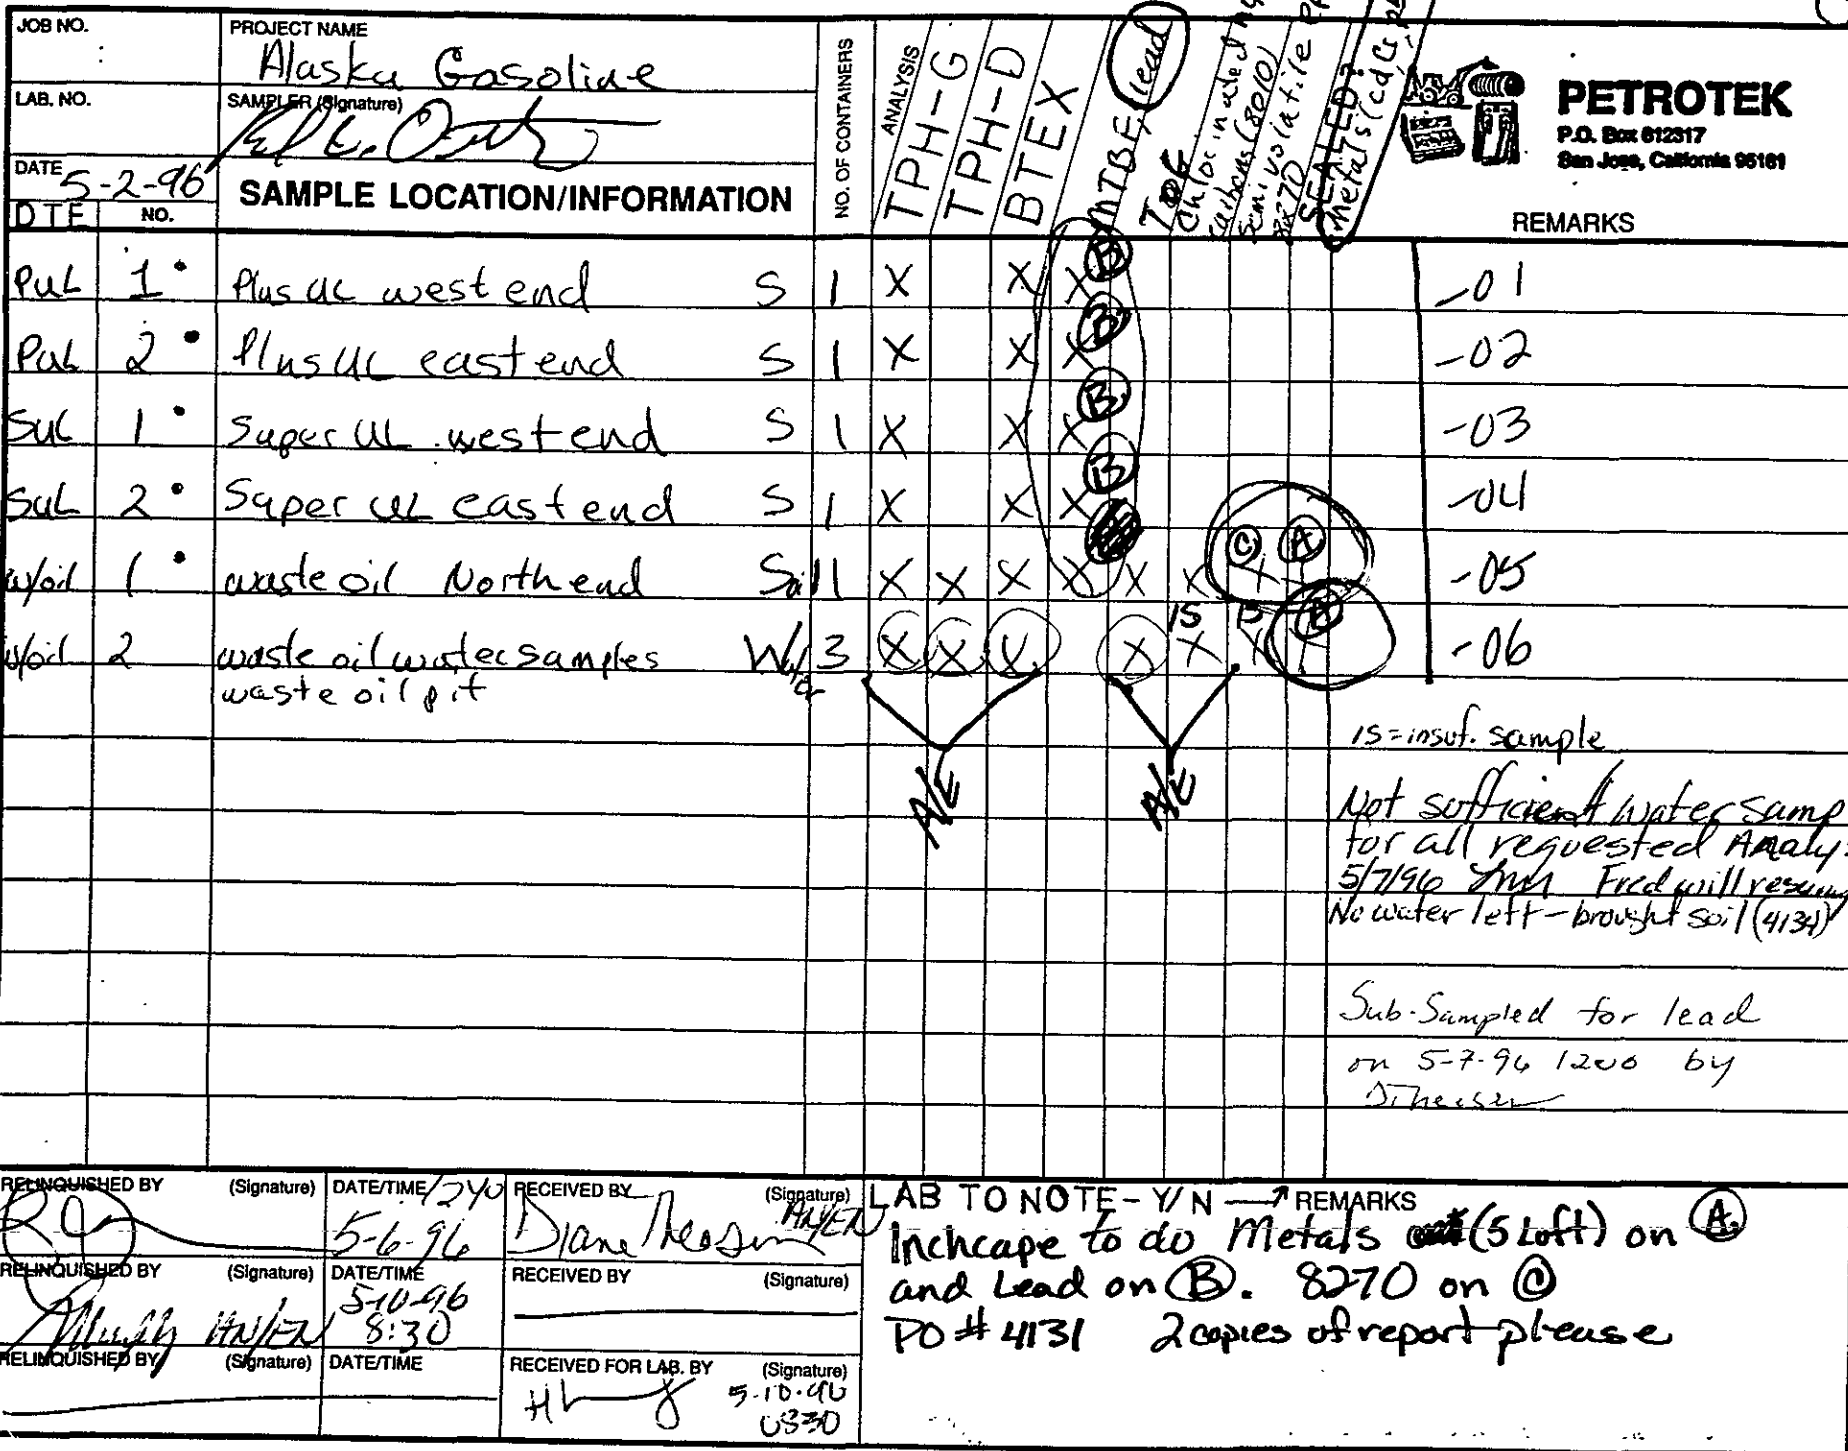 JOB NO.
PROJECT NAME
Alaska Gasoline
LAB. NO.
SAMPLER (Signature)
DATE
5-2-96
DTE NO.
SAMPLE LOCATION/INFORMATION
NO. OF CONTAINERS
ANALYSIS
TPH-G
TPH-D
BTEX
MTBE/lead
TOG
Chlorinated hy
carbons (8010)
Semivolatile
8270
SEALED?
metals (cd Cr
PETROTEK
P.O. Box 612317
San Jose, California 95161
REMARKS
PUL 1 Plus UL west end S 1 X X X B -01
PUL 2 Plus UL east end S 1 X X X B -02
SUL 1 Super UL west end S 1 X X X B -03
SUL 2 Super UL east end S 1 X X X B -04
C A
w/oil 1 waste oil North end Soil 1 X X X X X X X X -05
IS B
w/oil 2 waste oil water samples Water 3 X X X X X X X -06
waste oil pit
IS=insuf. sample
A/E A/E
Not sufficient water samp
for all requested Analy
5/7/96 Fred will
No water left-brought soil (4134)
Sub-Sampled for lead
on 5-7-96 1200 by
RELINQUISHED BY (Signature) DATE/TIME 1240 RECEIVED BY (Signature)
5-6-96 Diane AN/EN
RELINQUISHED BY (Signature) DATE/TIME RECEIVED BY (Signature)
AN/EN 5-10-96
8:30
RELINQUISHED BY (Signature) DATE/TIME RECEIVED FOR LAB. BY (Signature)
5-10-96
0830
LAB TO NOTE - Y/N → REMARKS
Inchcape to do Metals (5 Luft) on A.
and Lead on B. 8270 on C
PO # 4131 2 copies of report please